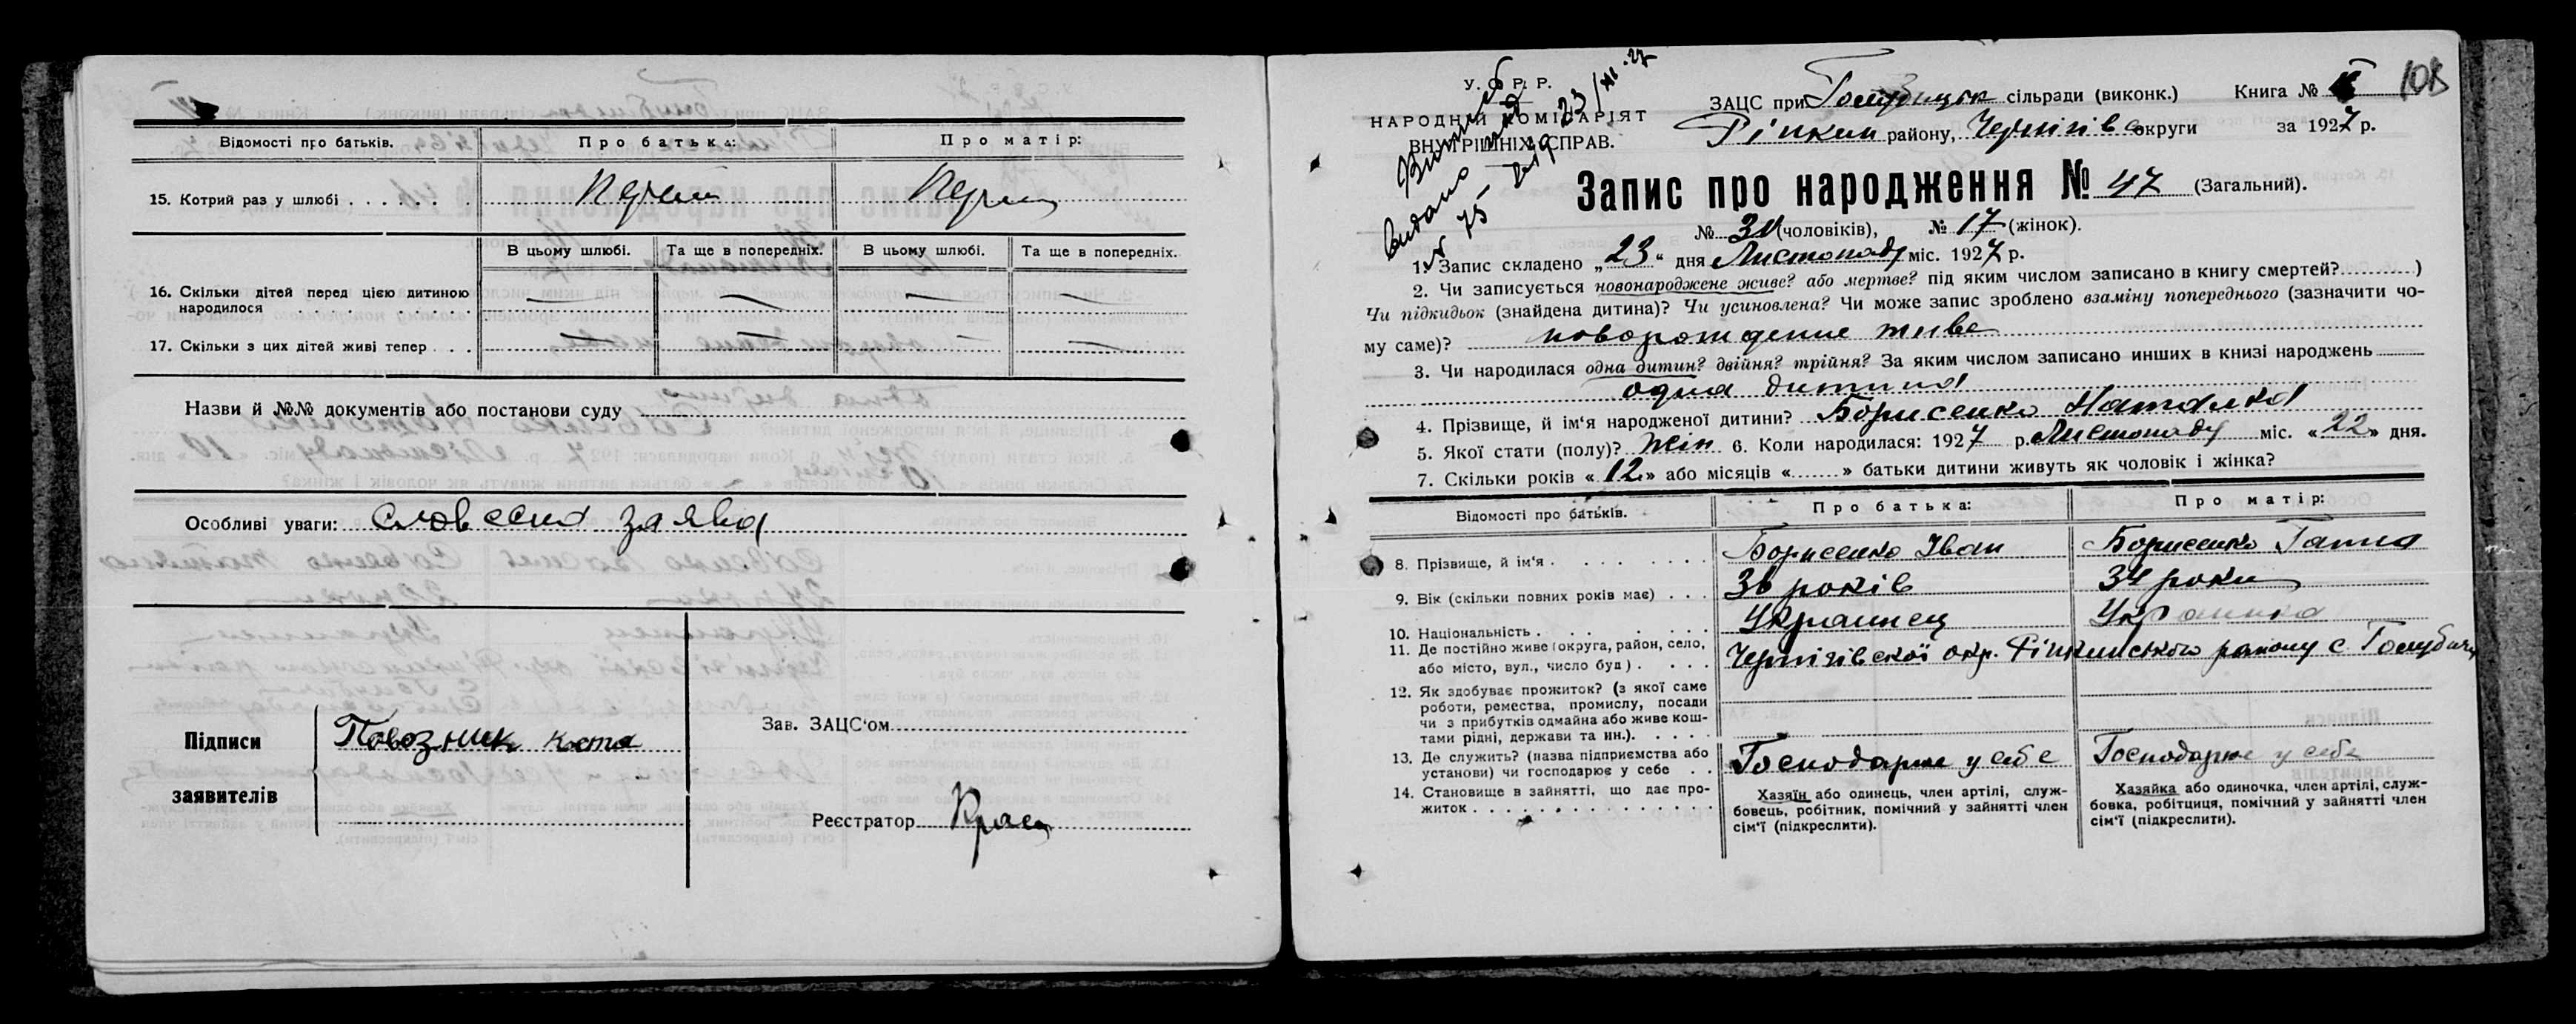 Відомості про батьків.
Про батька:
Про матір:
15. Котрий раз у шлюбі
Перший
Перши
В цьому шлюбі.
Та ще в попередніх.
В цьому шлюбі.
Та ще в попередніх.
16. Скільки дітей перед цією дитиною
народилося
— — — —
17. Скільки з цих дітей живі тепер
— — — —
Назви й №№ документів або постанови суду
Особливі уваги: словесна заява
Підписи
заявителів
Повозник
Зав. ЗАЦС'ом
Реєстратор
У. С. Р. Р.
НАРОДНІЙ КОМІСАРІЯТ
ВНУТРІШНІХ СПРАВ.
Видано
№ 75 від 23/XI. 27
ЗАЦС при Голубицьк сільради (виконк.) Книга №
108
Ріпкин району, Чернігівс округи за 1927 р.
Запис про народження № 47 (Загальний).
№ 30 (чоловіків), № 17 (жінок).
1. Запис складено „23“ дня Листопаду міс. 1927 р.
2. Чи записується новонароджене живе? або мертве? під яким числом записано в книгу смертей? )
Чи підкидьок (знайдена дитина)? Чи усиновлена? Чи може запис зроблено взаміну попереднього (зазначити чо-
му саме)? живе
3. Чи народилася одна дитин? двійня? трійня? За яким числом записано инших в книзі народжень
одна дитина
4. Прізвище, й ім'я народженої дитини? Борисенко Наталка
5. Якої стати (полу)? жін 6. Коли народилася: 1927 р. Листопаду міс. «22» дня.
7. Скільки років «12» або місяців « » батьки дитини живуть як чоловік і жінка?
Відомості про батьків.
Про батька:
Про матір:
8. Прізвище, й ім'я
Борисенко Іван
Борисенко Ганна
9. Вік (скільки повних років має)
36 років
34 роки
10. Національність
Украинец
Украинка
11. Де постійно живе (округа, район, село,
або місто, вул., число буд)
Чернігівскої окр. Ріпкинського району с Голубичі
12. Як здобуває прожиток? (з якої саме
роботи, ремества, промислу, посади
чи з прибутків одмайна або живе кош-
тами рідні, держави та ин.).
13. Де служить? (назва підприємства або
установи) чи господарює у себе
Господарює у себе
Господарює у себе
14. Становище в зайнятті, що дає про-
житок
Хазяїн або одинець, член артілі, служ-
бовець, робітник, помічний у зайнятті член
сім'ї (підкреслити).
Хазяйка або одиночка, член артілі, служ-
бовка, робітниця, помічний у зайнятті член
сім'ї (підкреслити).